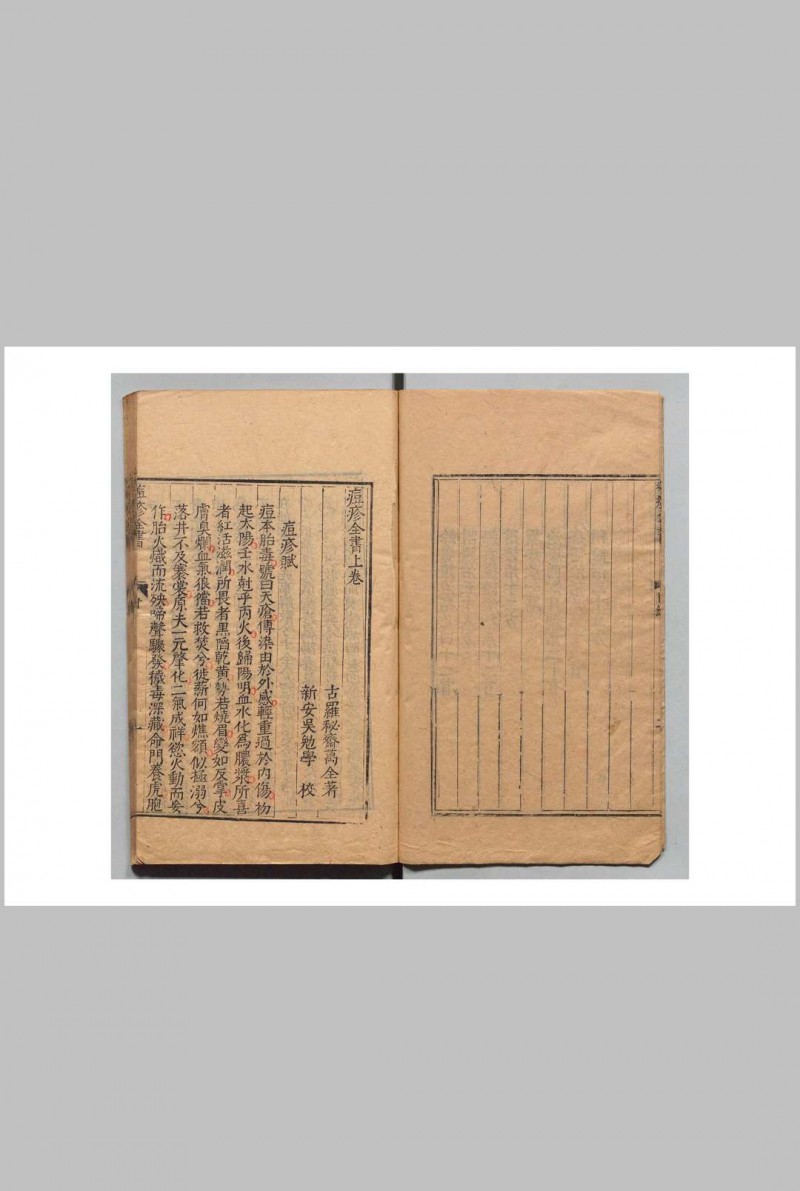 痘疹全書上卷
古羅秘齋萬全著
新安吳勉學 校
痘疹賦
痘本胎毒號曰天瘡傳染由於外感輕重過於內傷初
起太陽壬水尅乎丙火後歸陽明血水化為膿漿所喜
者紅活滋潤所畏者黑䧟乾黃勢若燒眉變如反掌皮
膚臭爛血氣狼惶若救焚兮徙薪何如燋額似拯溺兮
落井不及褰裳原夫一元肇化二氣成祥慾火動而妄
作胎火熾而流殃啼聲驟發穢毒深藏命門養虎胞
痘疹全書